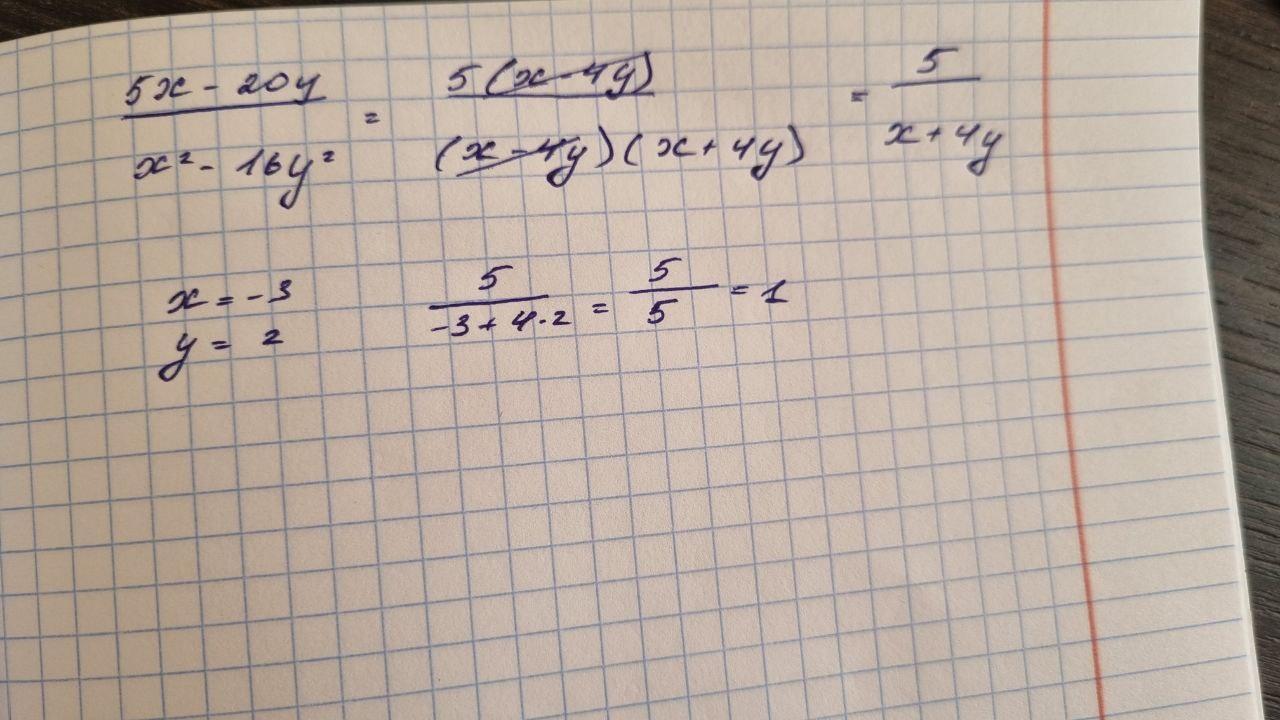 5x - 20y / x² - 16y² = 5(x - 4y) / (x - 4y)(x + 4y) = 5 / x + 4y
x = -3
y = 2
5 / -3 + 4·2 = 5 / 5 = 1